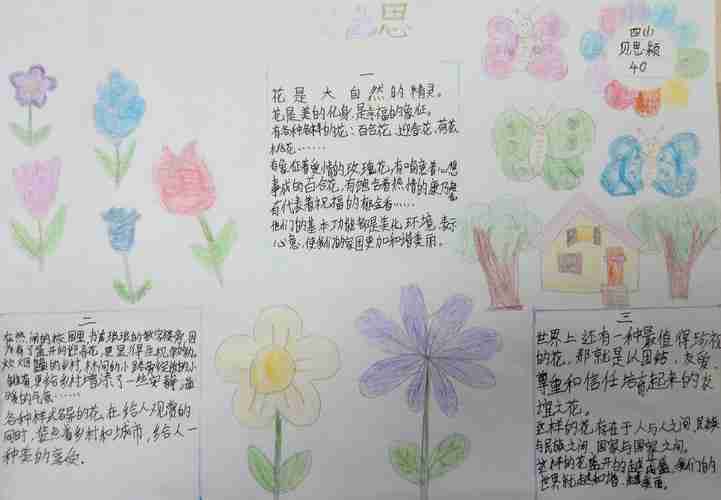 思
四山
贝思颖
40
一
花是大自然的精灵。
花是美的化身，是幸福的象征。
有各种各样的花：百合花、迎春花、荷花
桃花……
有象征着爱情的玫瑰花，有喻意着心想
事成的百合花，有蕴含着热情的康乃馨
有代表着祝福的郁金香……
他们的基本功能都是美化环境、表示
心意，使我们的家园更加和谐美丽。
二
在热闹的校园里，书声琅琅的教学楼旁，因
为有了盛开的野春花，更显得生机勃勃。
炊烟的乡村，林间的小路旁绽放的小
给乡村增添了一些安静、温
暖的气息……
各种种大名字的花，在给人观赏的
同时，装点着乡村和城市，给人一
种美的享受。
三
世界上还有一种最值得珍视
的花，那就是以团结、友爱、
尊重和信任培育起来的友
谊之花。
这样的花存在于人与人之间，民族
与民族之间，国家与国家之间。
这样的花盛开的越茂盛，我们的
世界就越和谐、越美丽。